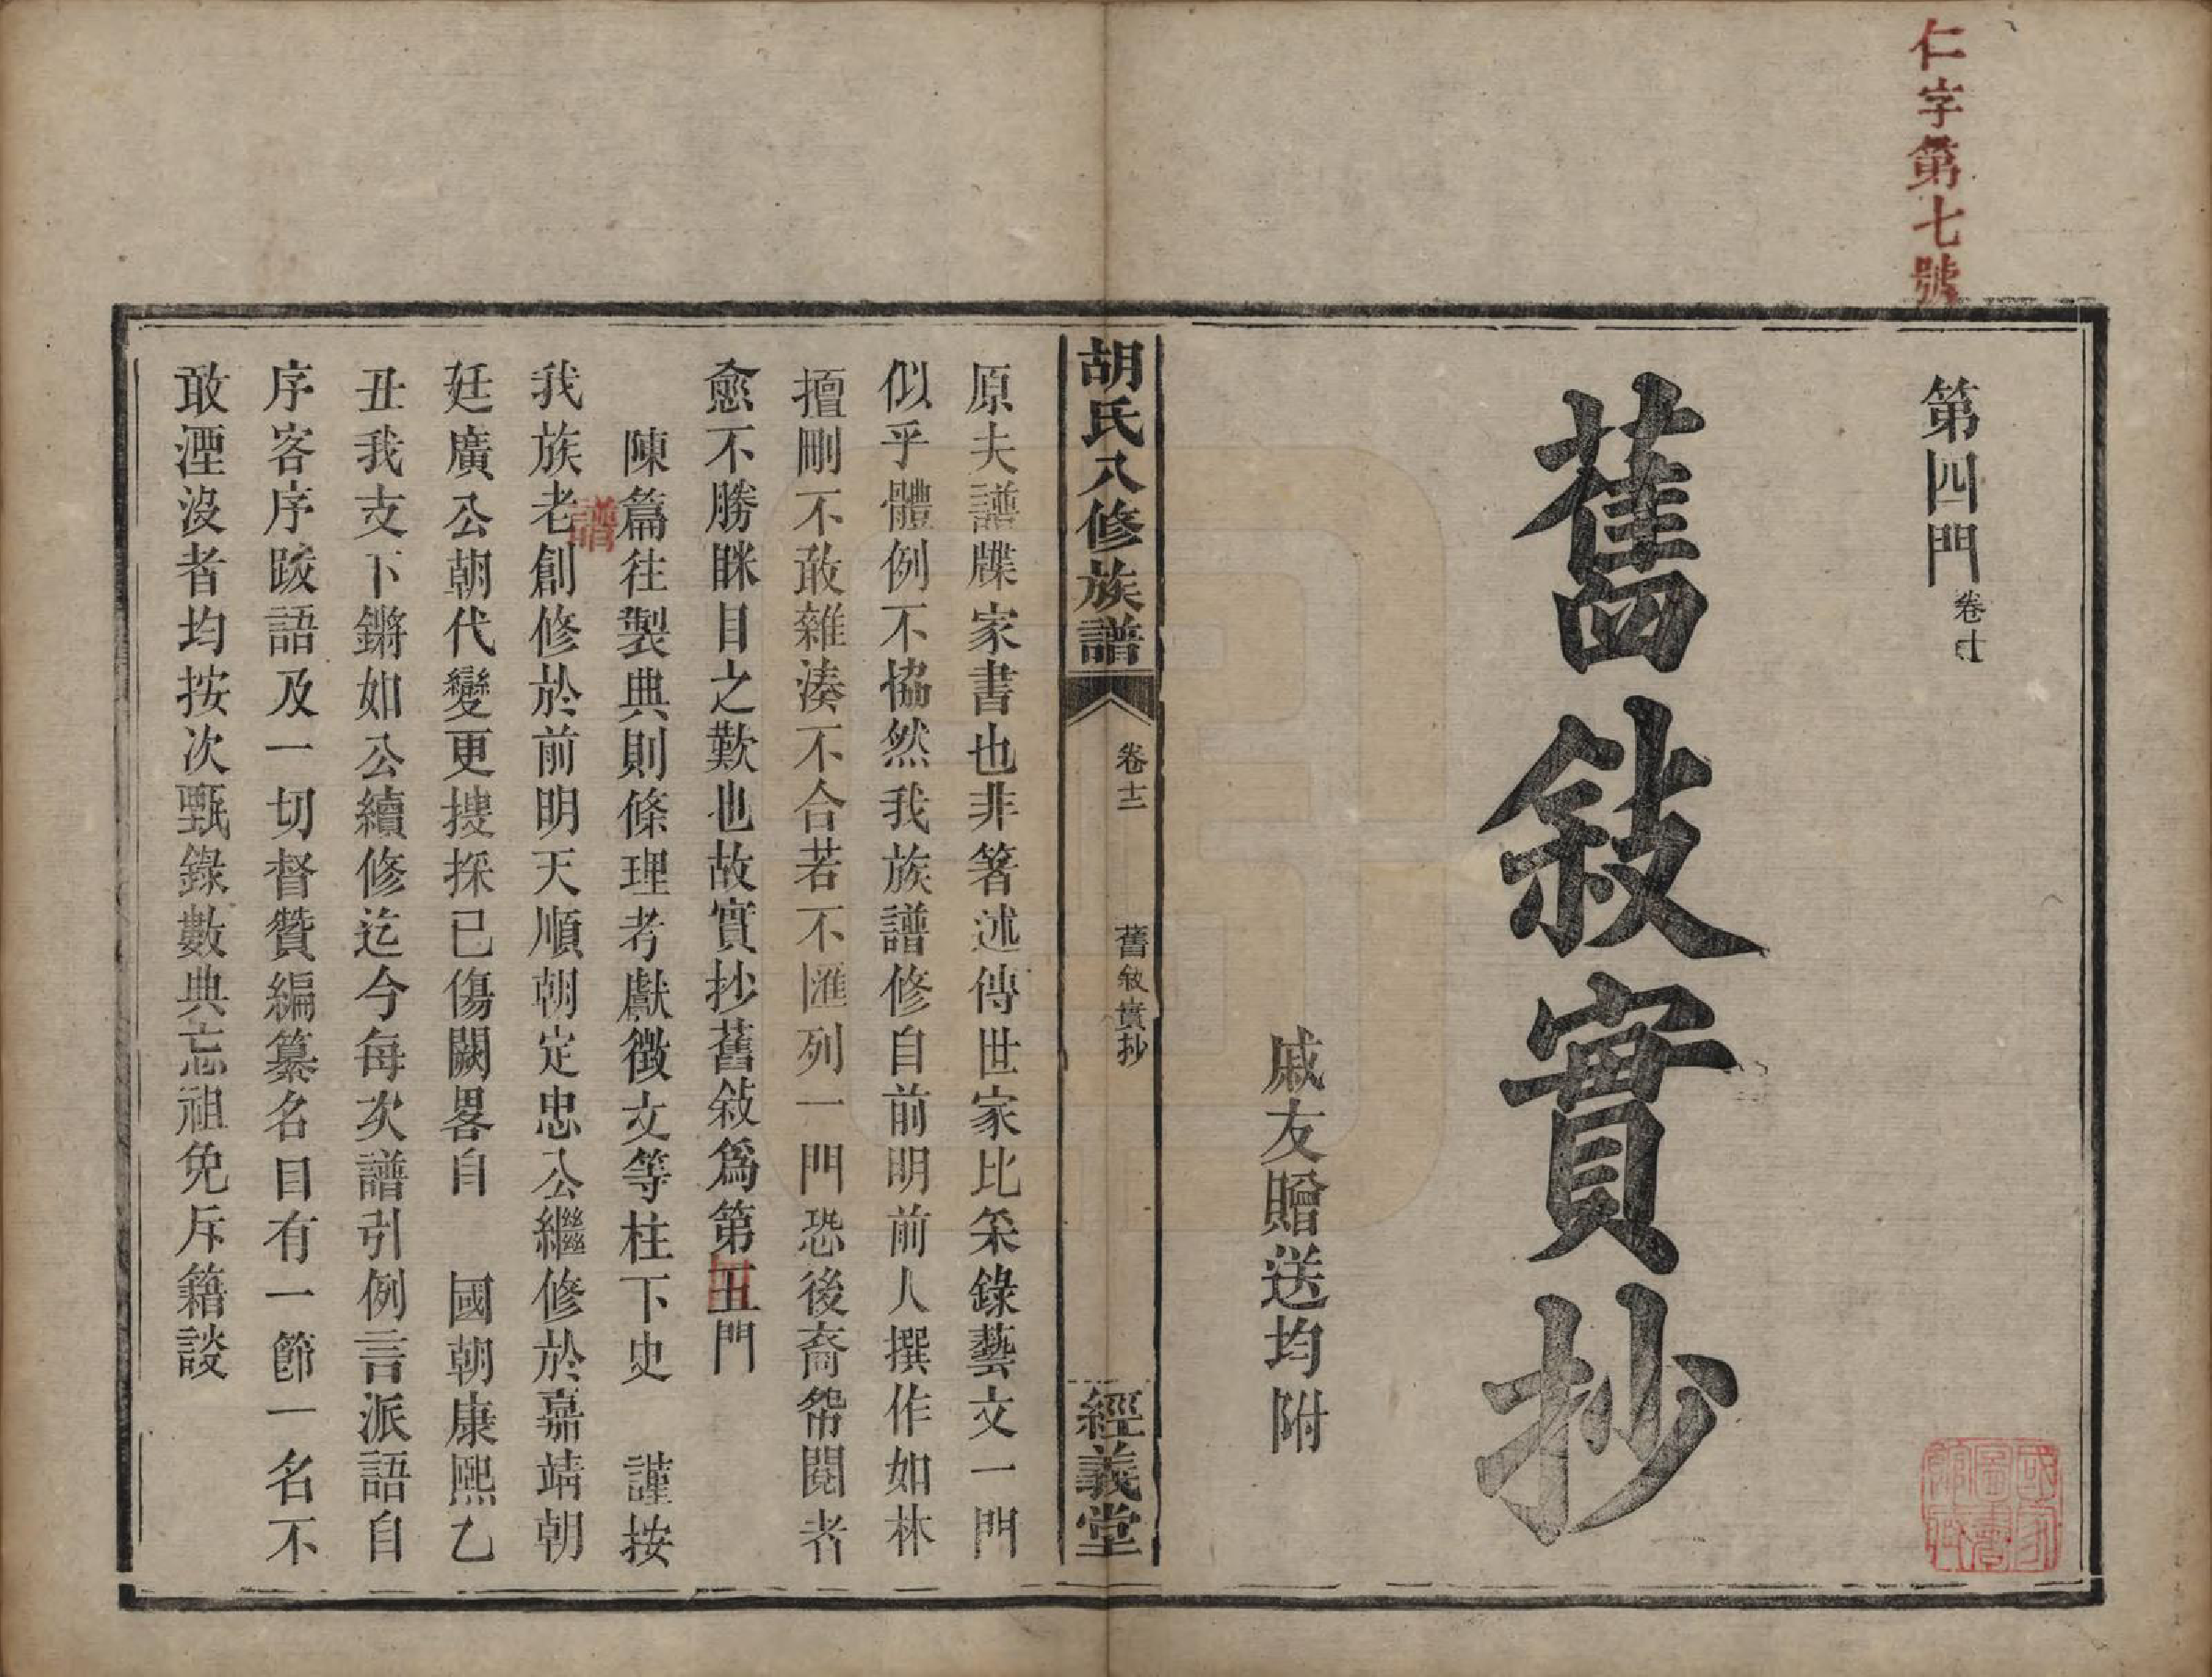 仁字第七號
第四門卷十
舊敍實抄
戚友贈送均附
胡氏八修族譜
卷十二
舊敍實抄
經義堂
原夫譜牒家書也非箸述傳世家比采錄藝文一門
似乎體例不協然我族譜修自前明前人撰作如林
擅刪不敢雜湊不合若不匯列一門恐後裔帑閱者
愈不勝眯目之歎也故實抄舊敍爲第五門
陳篇往製典則條理考獻徵文等柱下史　謹按
譜
我族老創修於前明天順朝定忠公繼修於嘉靖朝
廷廣公朝代變更搜採已傷闕畧自　國朝康熙乙
丑我支下鏘如公續修迄今每次譜引例言派語自
序客序跋語及一切督贊編纂名目有一節一名不
敢湮沒者均按次甄錄數典忘祖免斥籍談
國家圖書館藏